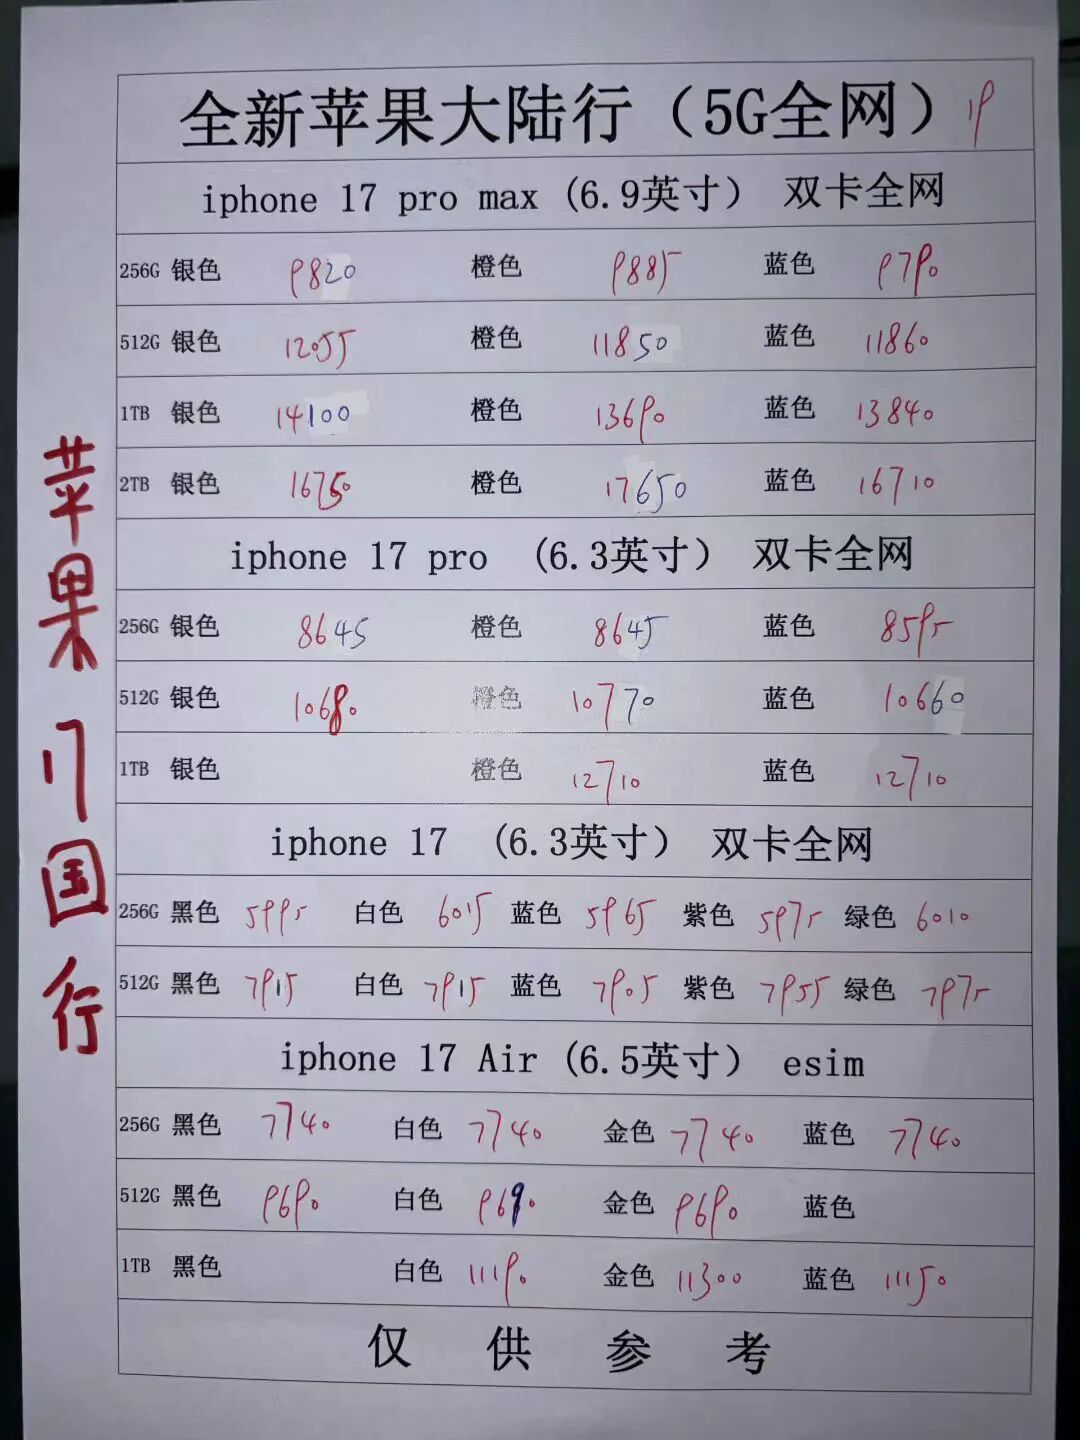 全新苹果大陆行（5G全网）19
iphone 17 pro max (6.9英寸） 双卡全网
256G 银色 9820 橙色 9885 蓝色 9790
512G 银色 12055 橙色 11850 蓝色 11860
1TB 银色 14100 橙色 13690 蓝色 13840
2TB 银色 16750 橙色 17650 蓝色 16710
iphone 17 pro (6.3英寸） 双卡全网
256G 银色 8645 橙色 8645 蓝色 8595
512G 银色 10680 橙色 10770 蓝色 10660
1TB 银色 橙色 12710 蓝色 12710
iphone 17 (6.3英寸） 双卡全网
256G 黑色 5995 白色 6015 蓝色 5965 紫色 5975 绿色 6010
512G 黑色 7915 白色 7915 蓝色 7905 紫色 7955 绿色 7975
iphone 17 Air (6.5英寸） esim
256G 黑色 7740 白色 7740 金色 7740 蓝色 7740
512G 黑色 9690 白色 9690 金色 9690 蓝色
1TB 黑色 白色 11190 金色 11300 蓝色 11150
仅供参考
苹果17国行